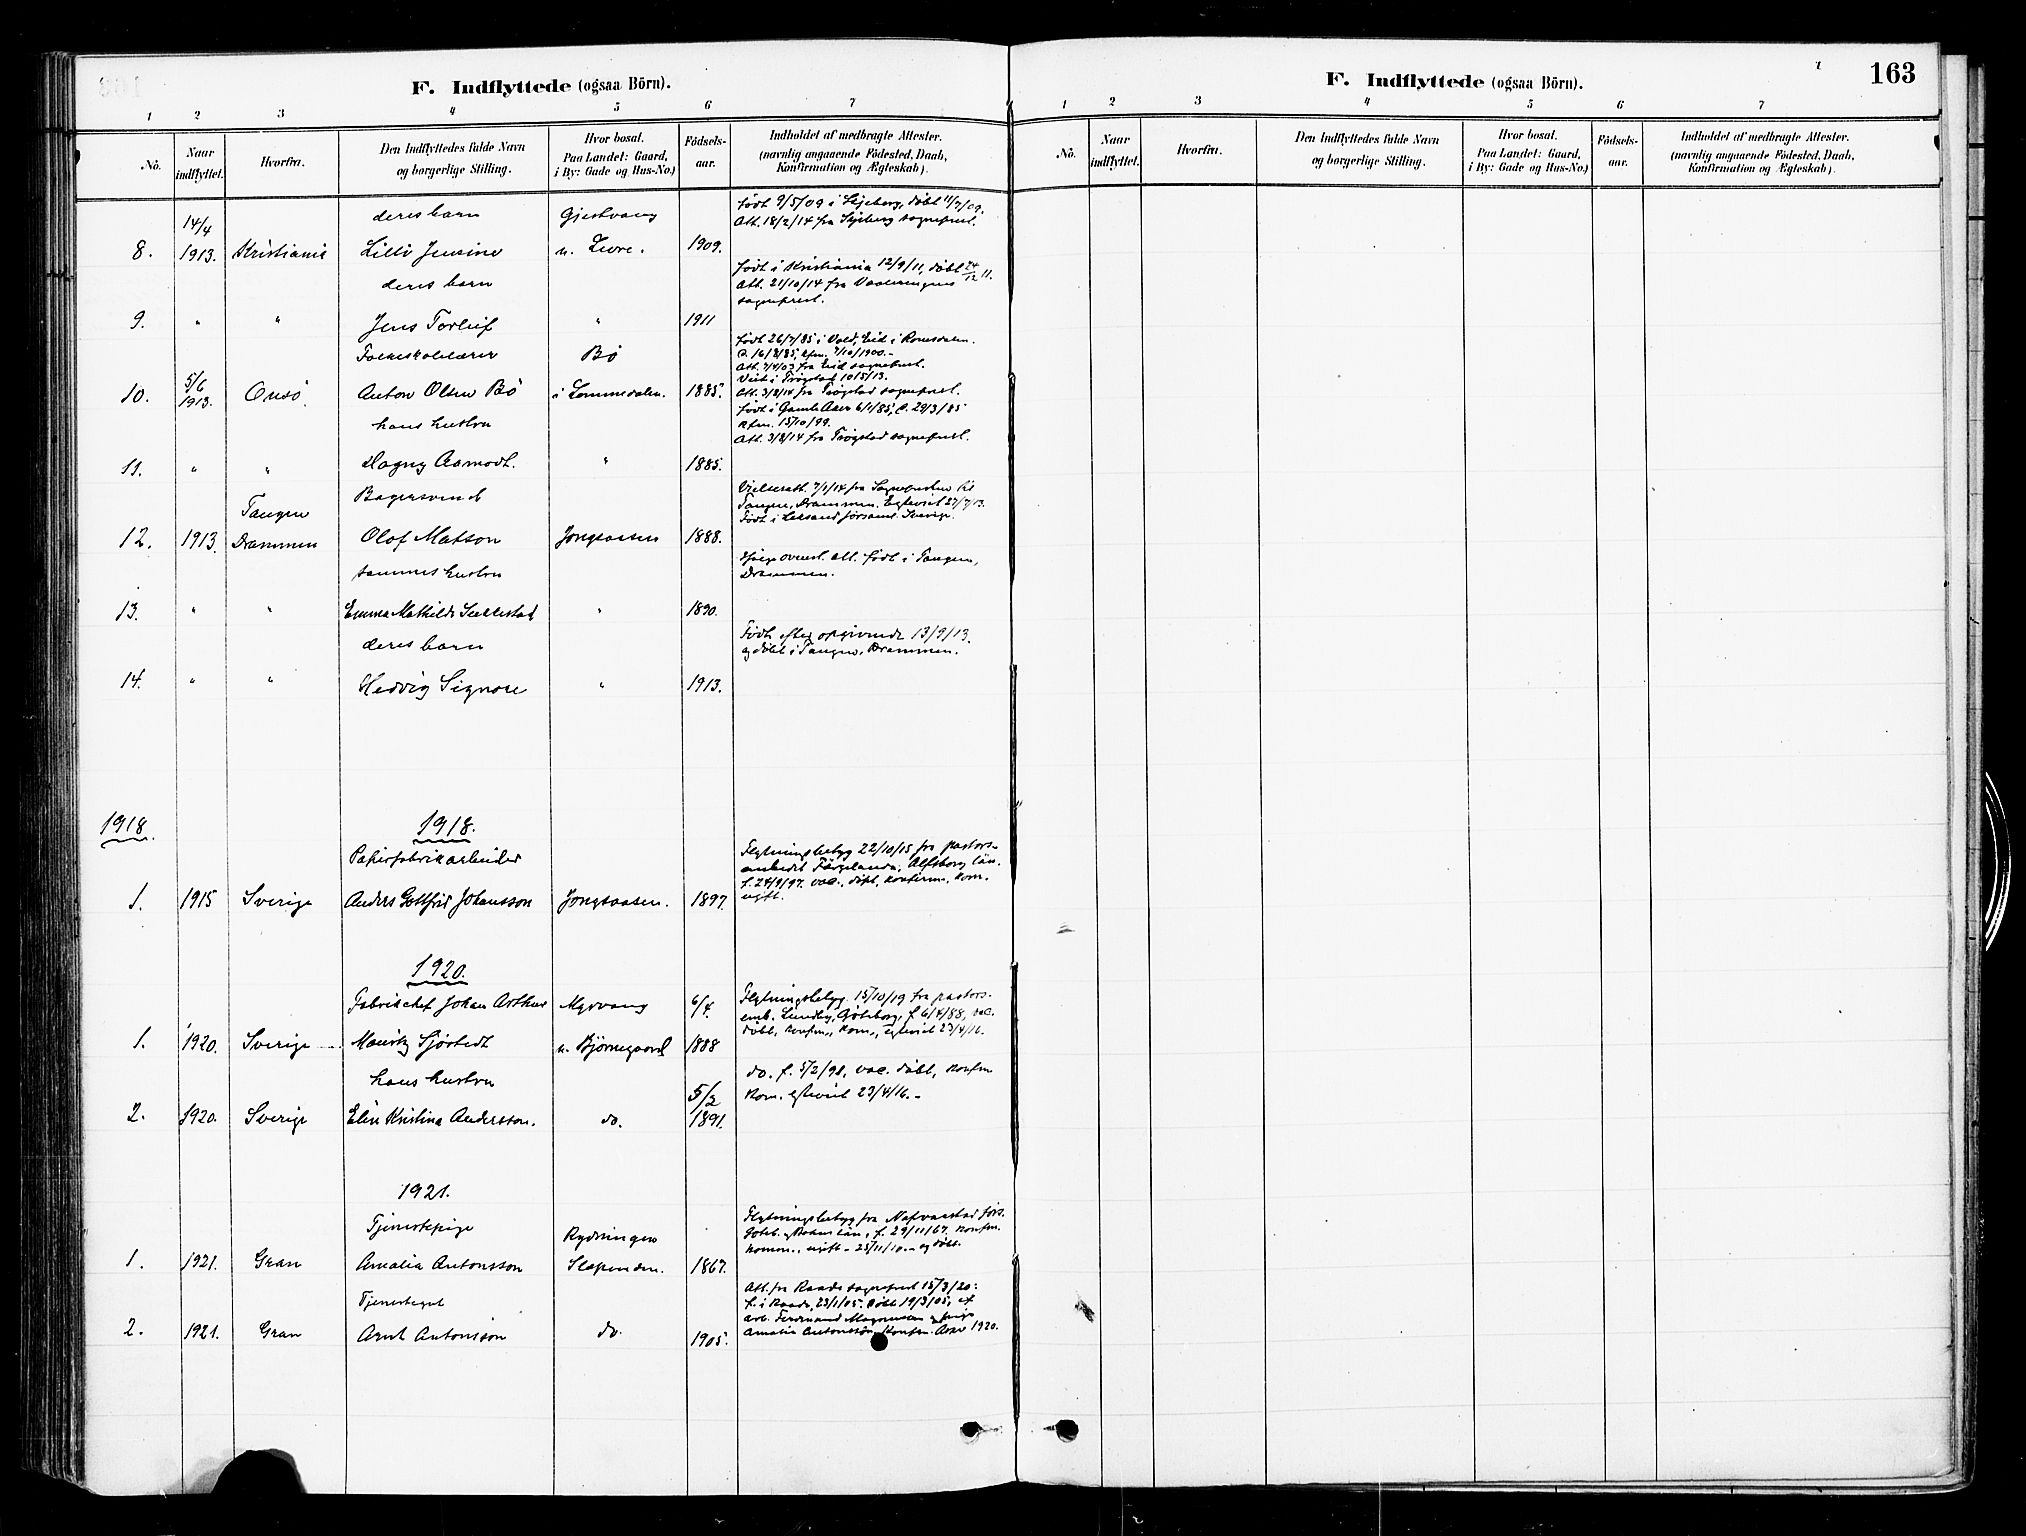 163
F. Indflyttede (ogsaa Börn).
1 2 3 4 5 6 7
No.
Naar indflyttet.
Hvorfra.
Den Indflyttedes fulde Navn og borgerlige Stilling.
Hvor bosat. Paa Landet: Gaard, i By: Gade og Hus-No.)
Födsels-aar.
Indholdet af medbragte Attester. (navnlig angaaende Födested, Daab, Konfirmation og Ægteskab).
14/4 deres barn Gjestvang
født 9/5/09 i Skjeberg, døbt 11/7/09.
Att. 18/2/14 fra Skjeberg sogneprest.
8. 1913. Kristiania Lilli Jensine 1909.
deres barn
født i Kristiania 12/9/11, døbt 24/12 11.
Att. 21/10/14 fra Vaalerengens
sogneprest.
9. " " Jens Torleif " 1911
Folkeskolelærer Bø
født 26/7/85 i Vold, Eid i Romsdalen.
D. 16/8/85, kfm. 7/10/1900.-
Att. 7/4/03 fra Eid sogneprest.
Viet i Trøgstad 10/5/13.
10. 5/6 1913. Onsø Anton Olsen Bø i Lommedalen. 1885.
Att. 3/8/14 fra Trøgstad sogneprest.
hans hustru
født i Gamle Aker 6/1/85, d. 29/3/85
kfm. 15/10/99.
Att. 3/8/14 fra Trøgstad sogneprest.
11. " " Dagny Aamodt. " 1885.
Bagersvend
Tangen
Vielsesatt. 7/1/14 fra Sognepresten til
Tangen, Drammen. Egteviet 27/7/13.
Født i Leksand församl. Sverige.
12. 1913. Drammen Olof Matson Jongsaasen 1888.
sammes hustru
ifølge ovenst. att. født i Tangen,
Drammen.
13. " " Emma Mathilde Sællestad " 1890.
deres barn
Født efter opgivende 13/9/13.
og døbt i Tangen, Drammen.
14. " " Hedvig Signore " 1913.
1918. 1918.
Papirfabrikarbeider
Flytningsbetyg 22/10/15 fra pastors-
embedet Färgelanda, Alfsborg län.
f. 24/9/97. vac., døbt, konfirm., kom.
ugift.
1. 1915 Sverige Anders Gottfrid Johansson Jongsaasen. 1897.
1920.
Fabrikchef Johan Arthur Myrvang 6/4.
Flytningsbetyg. 15/10/19 fra pastors-
emb. Lundby, Göteborg, f. 6/4/88, vac.
døbt, konfm., kom., egteviet 23/4/16.
1. 1920. Sverige Mauritz Sjöstedt u. Bjørnegaard 1888
hans hustru 5/2
do. f. 5/2/91, vac. døbt, konfm
kom. egteviet 23/4/16.-
2. 1920. Sverige Elin Kristina Andersson. do. 1891.
1921.
Tjenestepige Rydningen
Flytningsbetyg fra Nafverstad förs.
Göteb. og Bohus län, f. 29/11/67. konfm.
komm., ugift - 25/11/10.- og døbt.
1. 1921. Gran Amalia Antonsson Slependen. 1867.
Tjenestegut
Att. fra Raade sogneprest 15/3/20:
f. i Raade, 23/1/05. døbt 19/3/05, af
arb. Ferdinand Magnussen og pige
Amalia Antonssön. Konfm. Asker 1920.
2. 1921. Gran Arnt Antonsson do. 1905.
F. Indflyttede (ogsaa Börn).
1 2 3 4 5 6 7
No.
Naar indflyttet.
Hvorfra.
Den Indflyttedes fulde Navn og borgerlige Stilling.
Hvor bosat. Paa Landet: Gaard, i By: Gade og Hus-No.)
Födsels-aar.
Indholdet af medbragte Attester. (navnlig angaaende Födested, Daab, Konfirmation og Ægteskab).